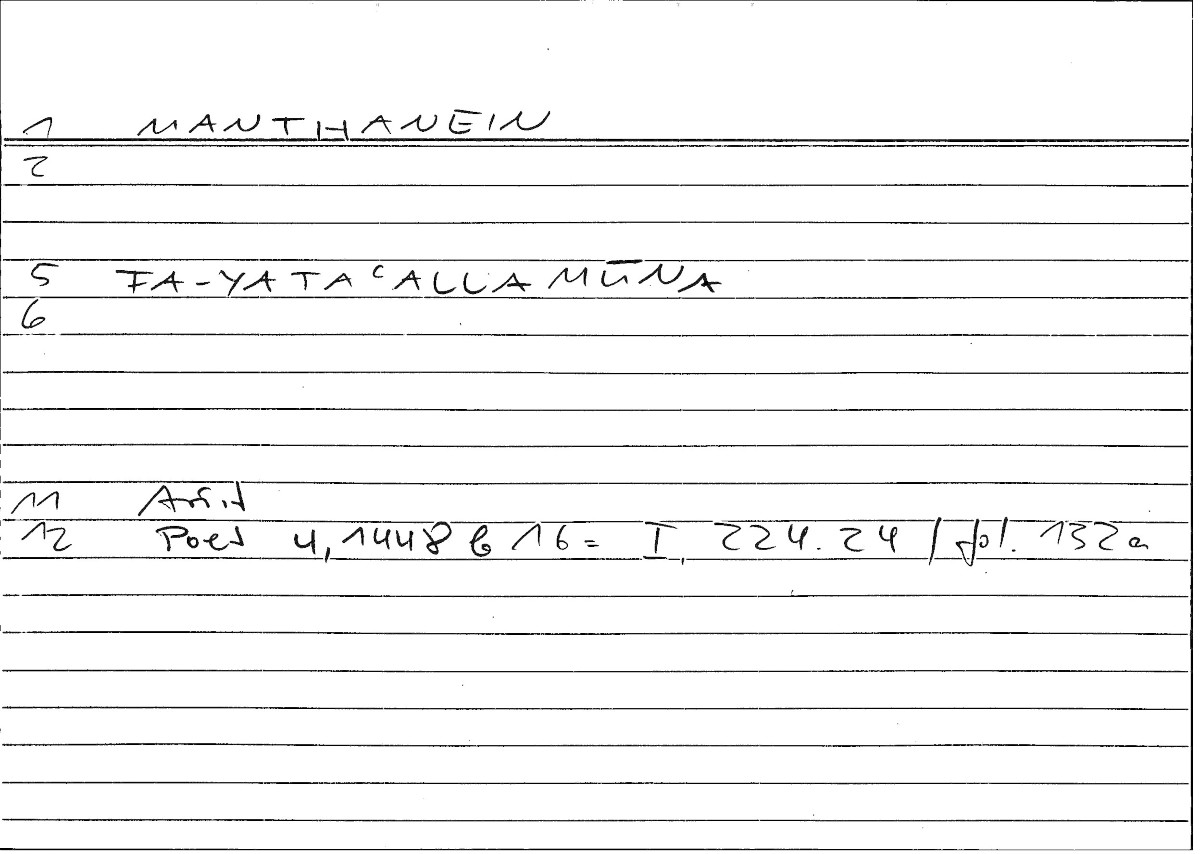 1 MANTHANEIN
2
5 FA-YATAʿALLAMŪNA
6
11 Arist
12 Poet 4,1448 b 16 = I, 224.24 / fol. 132a